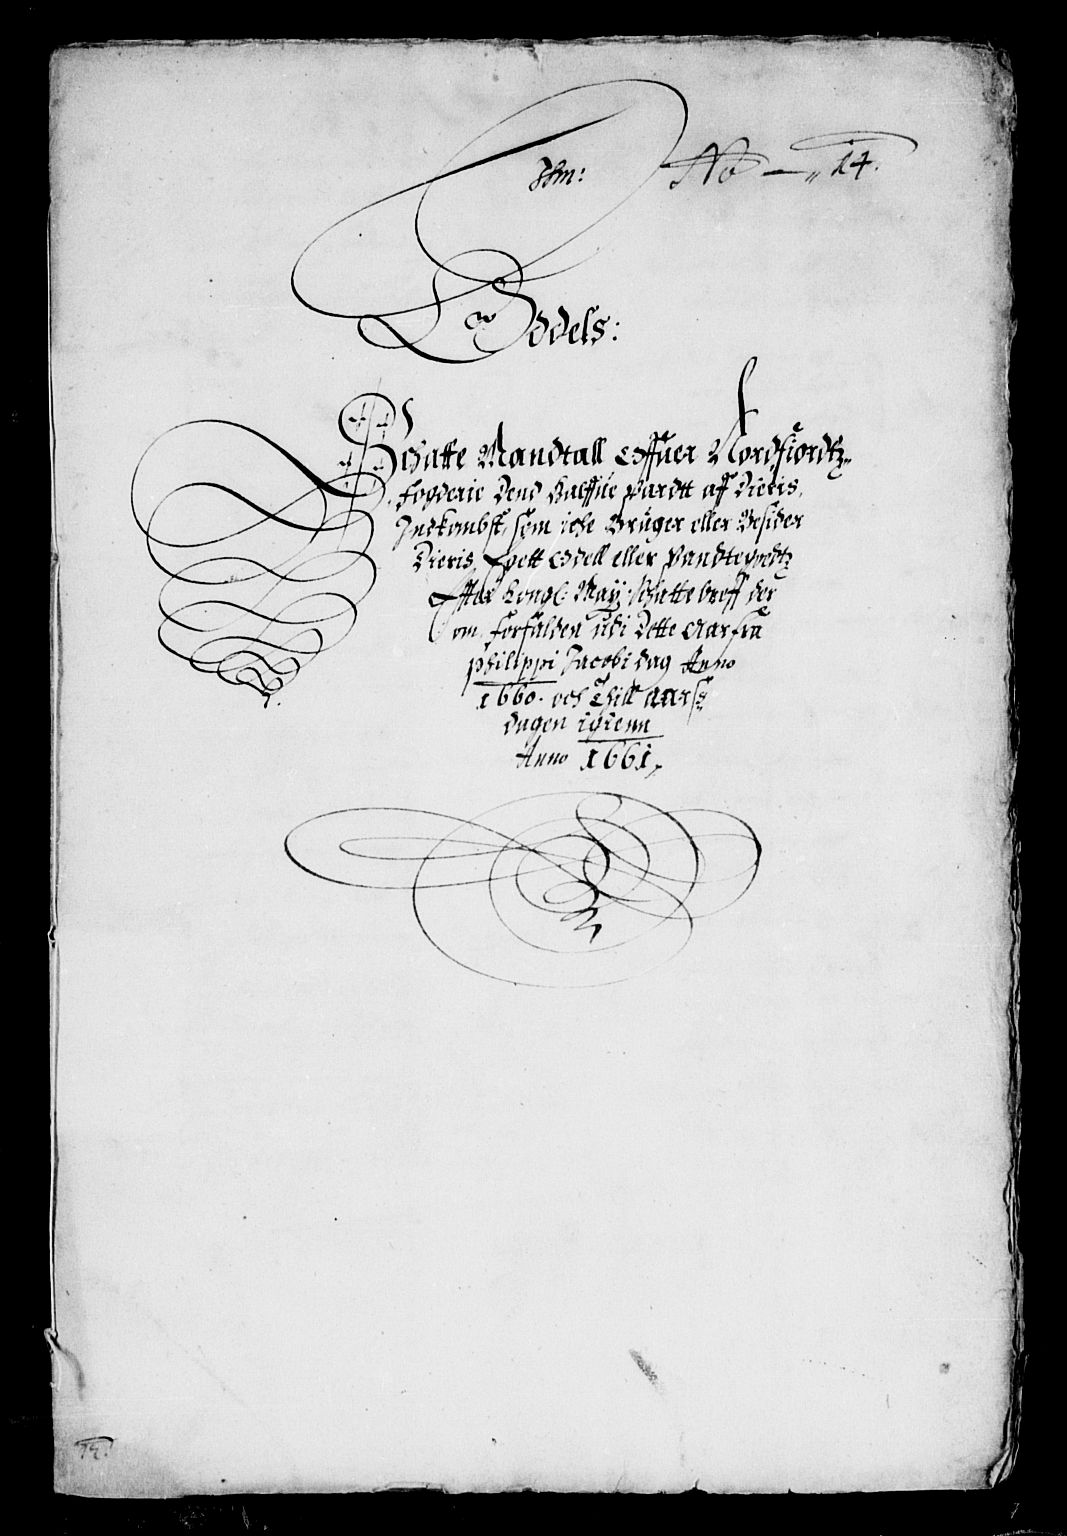 No 14.
Odels:
Schatte Mandtall Offuer Nordfiordtz
fogderie Dend Halffue partt aff Dieris
Indkombst, som iche Bruger eller Besider
Dieris Eget Odell eller Pandtegodtz
Effter Kongl: May: Schatte breff der
om, forfalden udi Dette Aar fra
Philippi Jacobi dag Anno
1660. och Thill aars
dagen igienn
Anno 1661,
14.